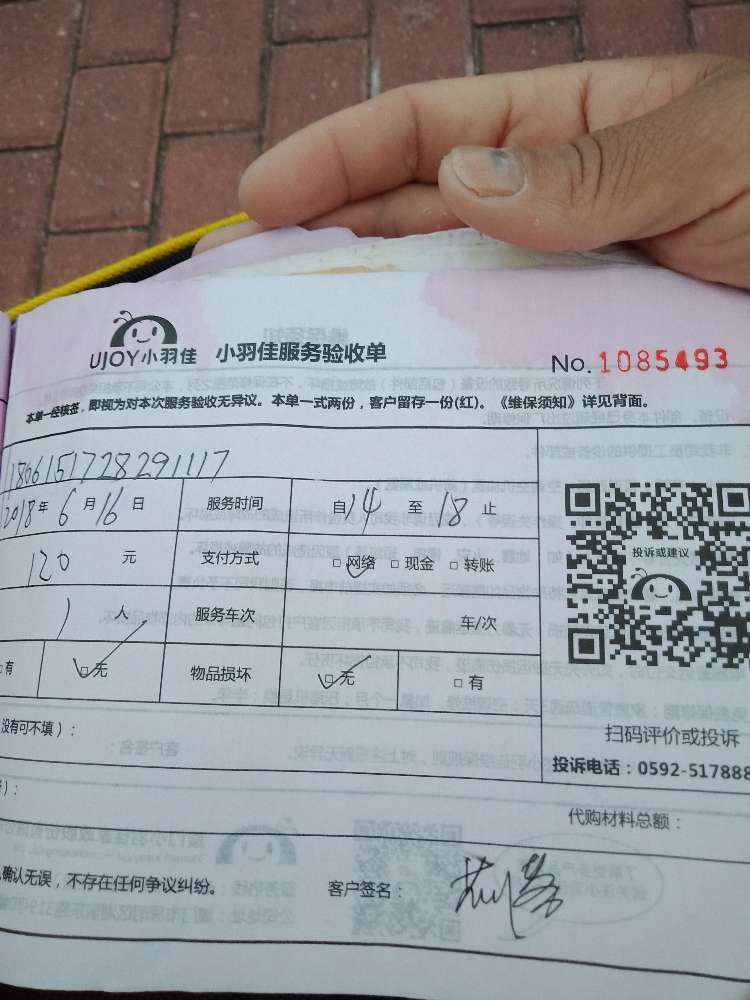 UJOY小羽佳 小羽佳服务验收单
No. 1085493
本单一经核签，即视为对本次服务验收无异议。本单一式两份，客户留存一份(红)。《维保须知》详见背面。
1806151728291117
2018年 6月16日 服务时间 自14至18止
120 元 支付方式 □网络 □现金 □转账
1 人 服务车次 车/次
□有 □无 物品损坏 □无 □有
投诉或建议
没有可不填）：
扫码评价或投诉
投诉电话：0592-517888
）：
代购材料总额：
确认无误，不存在任何争议纠纷。 客户签名：